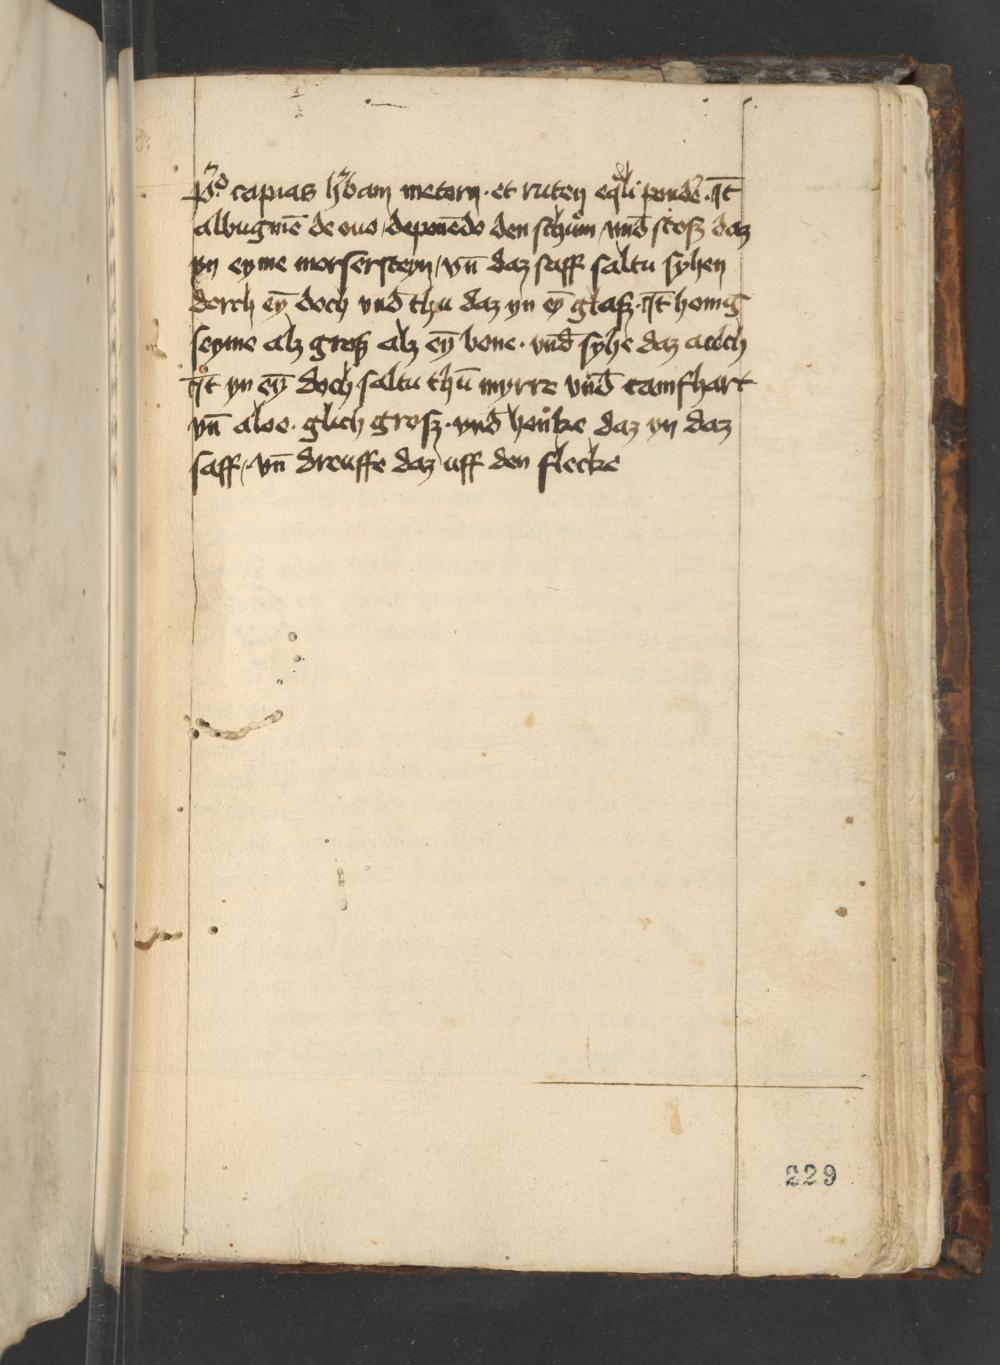 p̄o capias h̄bam metern · et ruten eqͣli pond̄e · It̄
albugine̅ de ouo / depone̅do den schům / vnd̄ stosz daz
yn eyme morsersteyn / vn̄ daz saff saltu syhen
dorch ey̅ doch vnd̄ thu daz yn ey̅ glasz · It̄ honig
seyme alz grosz alz ey̅ bone · vnd̄ syhe daz auch
It̄ yn ey̅ doch saltu thu̅ myrre vnd̄ camfhart
vn̄ aloe · glich grosz · vnd̄ henke daz yn daz
saff / · vn̄ dreuffe daz uff den flecke
229